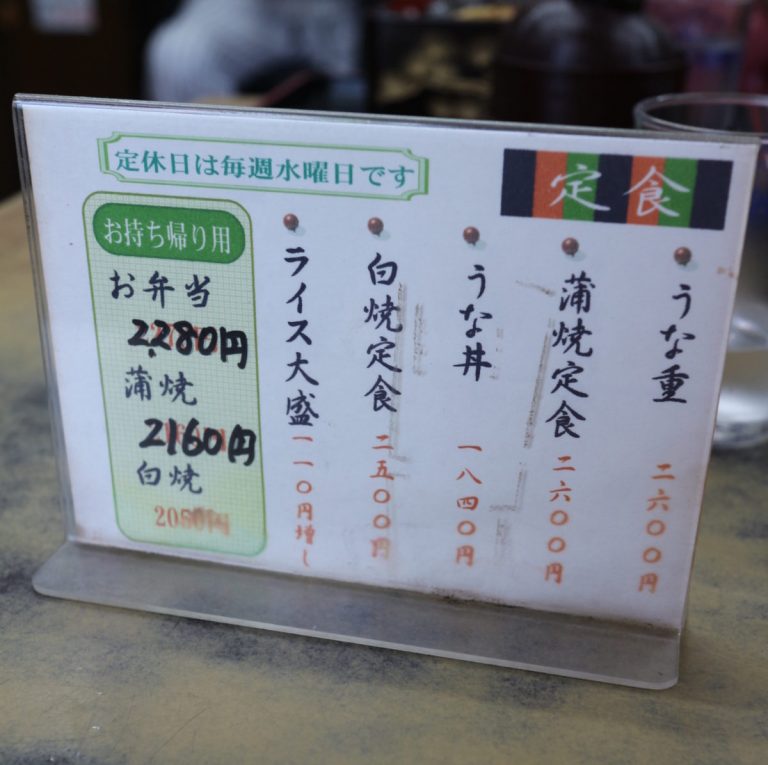 定休日は毎週水曜日です
定食
うな重 二六〇〇円
蒲焼定食 二六〇〇円
うな丼 一八四〇円
白焼定食 二五〇〇円
ライス大盛 一一〇円増し
お持ち帰り用
お弁当
2,280円
蒲焼
2160円
白焼
2050円